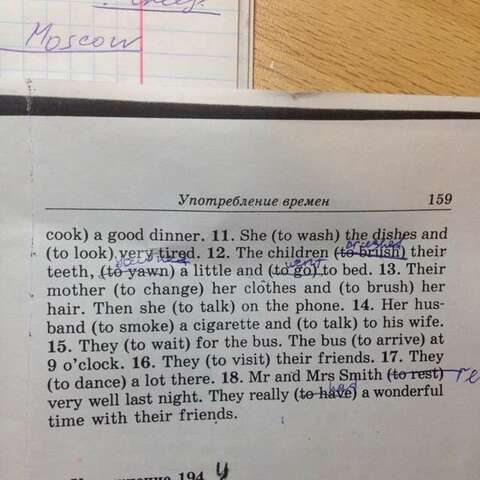 Moscow
Употребление времен 159
cook) a good dinner. 11. She (to wash) the dishes and
(to look) very tired. 12. The children (to brush) their
teeth, (to yawn) a little and (to go) to bed. 13. Their
went
mother (to change) her clothes and (to brush) her
hair. Then she (to talk) on the phone. 14. Her hus-
band (to smoke) a cigarette and (to talk) to his wife.
15. They (to wait) for the bus. The bus (to arrive) at
9 o'clock. 16. They (to visit) their friends. 17. They
(to dance) a lot there. 18. Mr and Mrs Smith (to rest) re
very well last night. They really (to have) a wonderful
time with their friends.
194